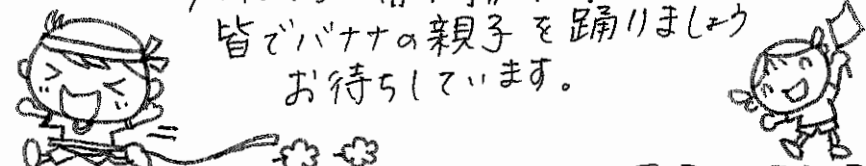 皆でバナナの親子を踊りましょう
お待ちしています。